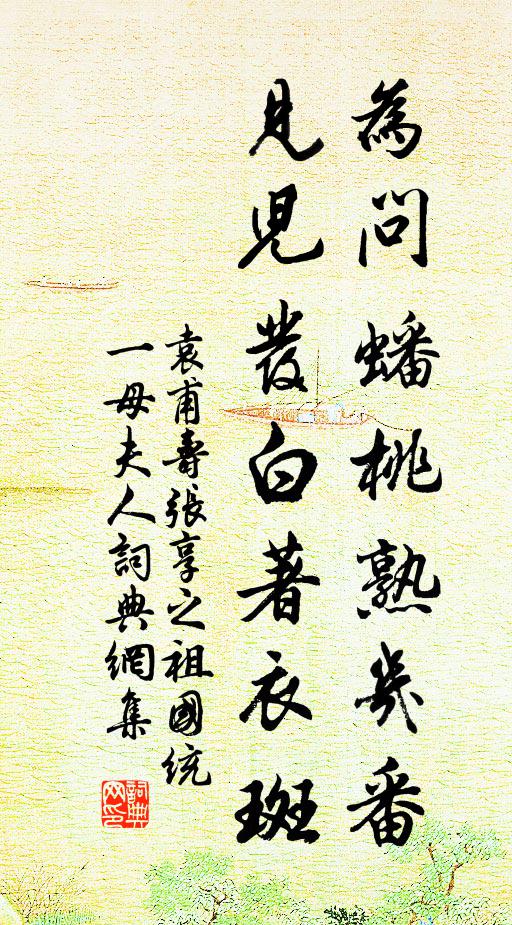 為問蟠桃熟幾番
見兒發白著衣斑
袁甫壽張亨之祖國統
一母夫人詞典網集
詞典网印